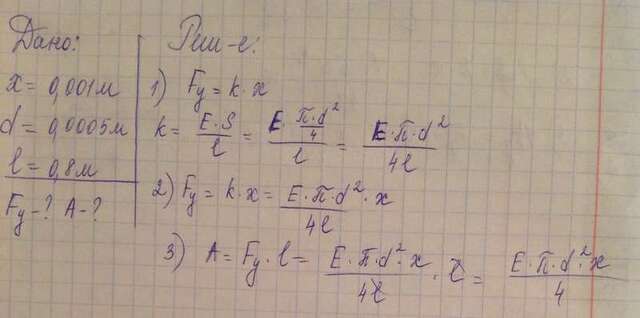 Дано:
x = 0,001м
d = 0,0005м
l = 0,8м
Fy - ? A - ?
Реш-е:
1) Fy = k · x
k = E · S / l = E · П · d² / 4 / l = E · П · d² / 4l
2) Fy = k · x = E · П · d² · x / 4l
3) A = Fy · l = E · П · d² · x / 4l · l = E · П · d² · x / 4